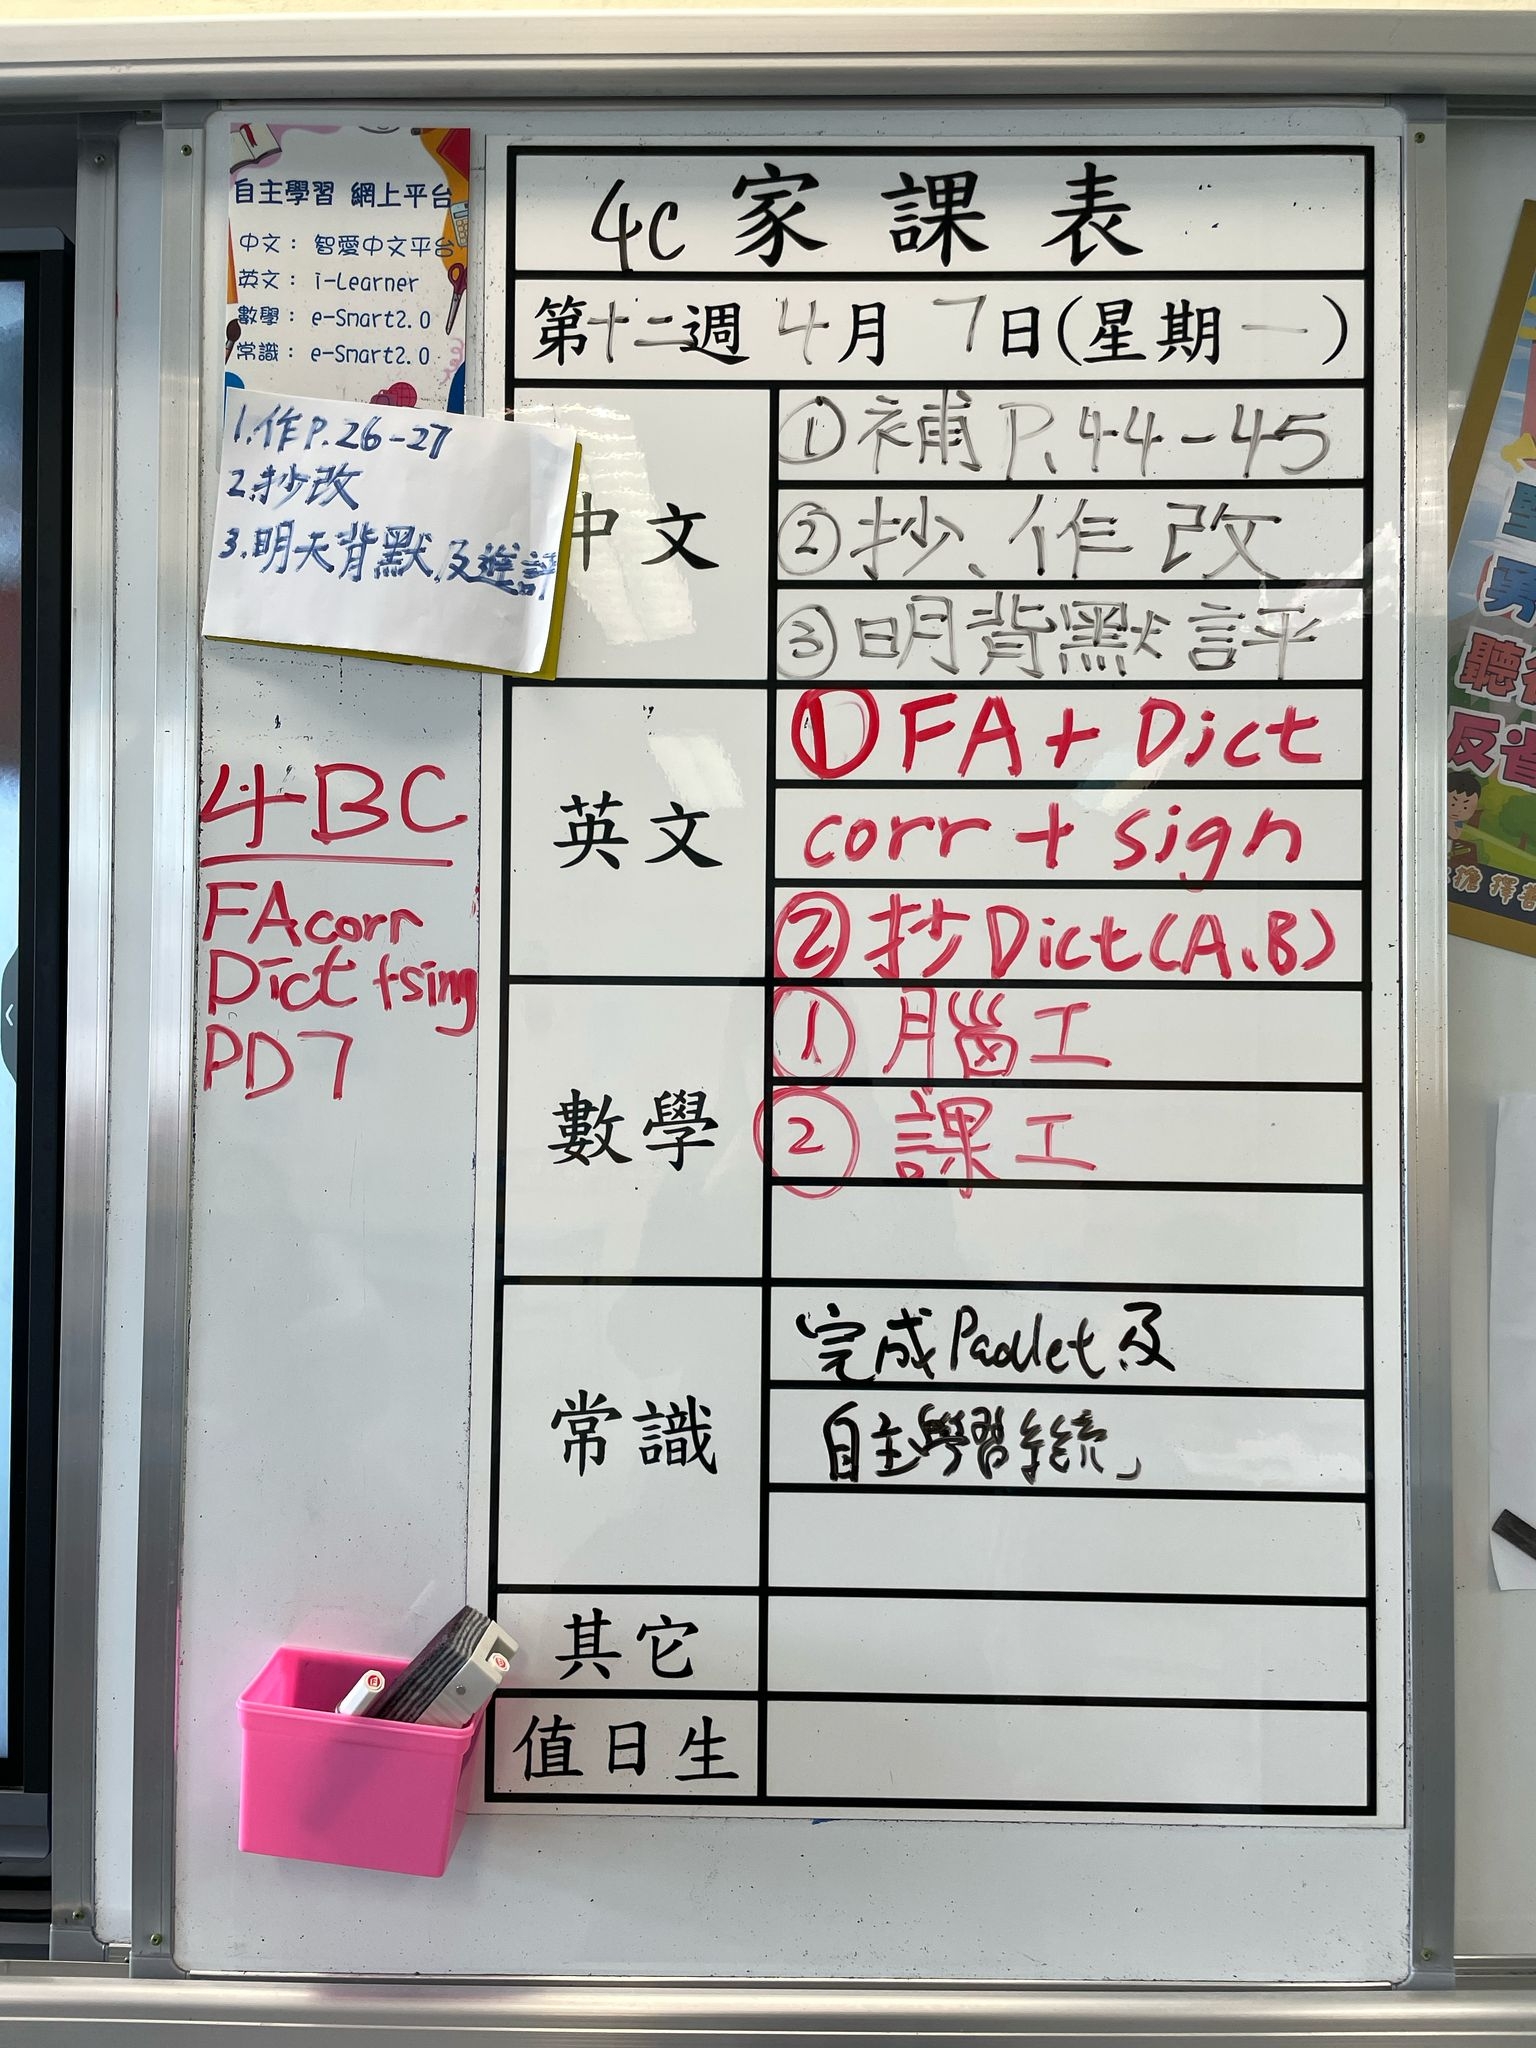 自主學習 網上平台
中文： 智愛中文平台
英文： i-Learner
數學： e-Smart2.0
常識： e-Smart2.0
1.作P.26-27
2.抄改
3.明天背默及進評
4BC
FAcorr
Dict +sing
PD7
4C 家課表
第十二週 4月 7日(星期一)
中文
①補P.44-45
②抄、作改
③明背默評
英文
①FA + Dict
corr + sign
②抄Dict(A、B)
數學
①腦工
②課工
常識
完成Padlet及
自主學習
其它
值日生
勇
聽
反省